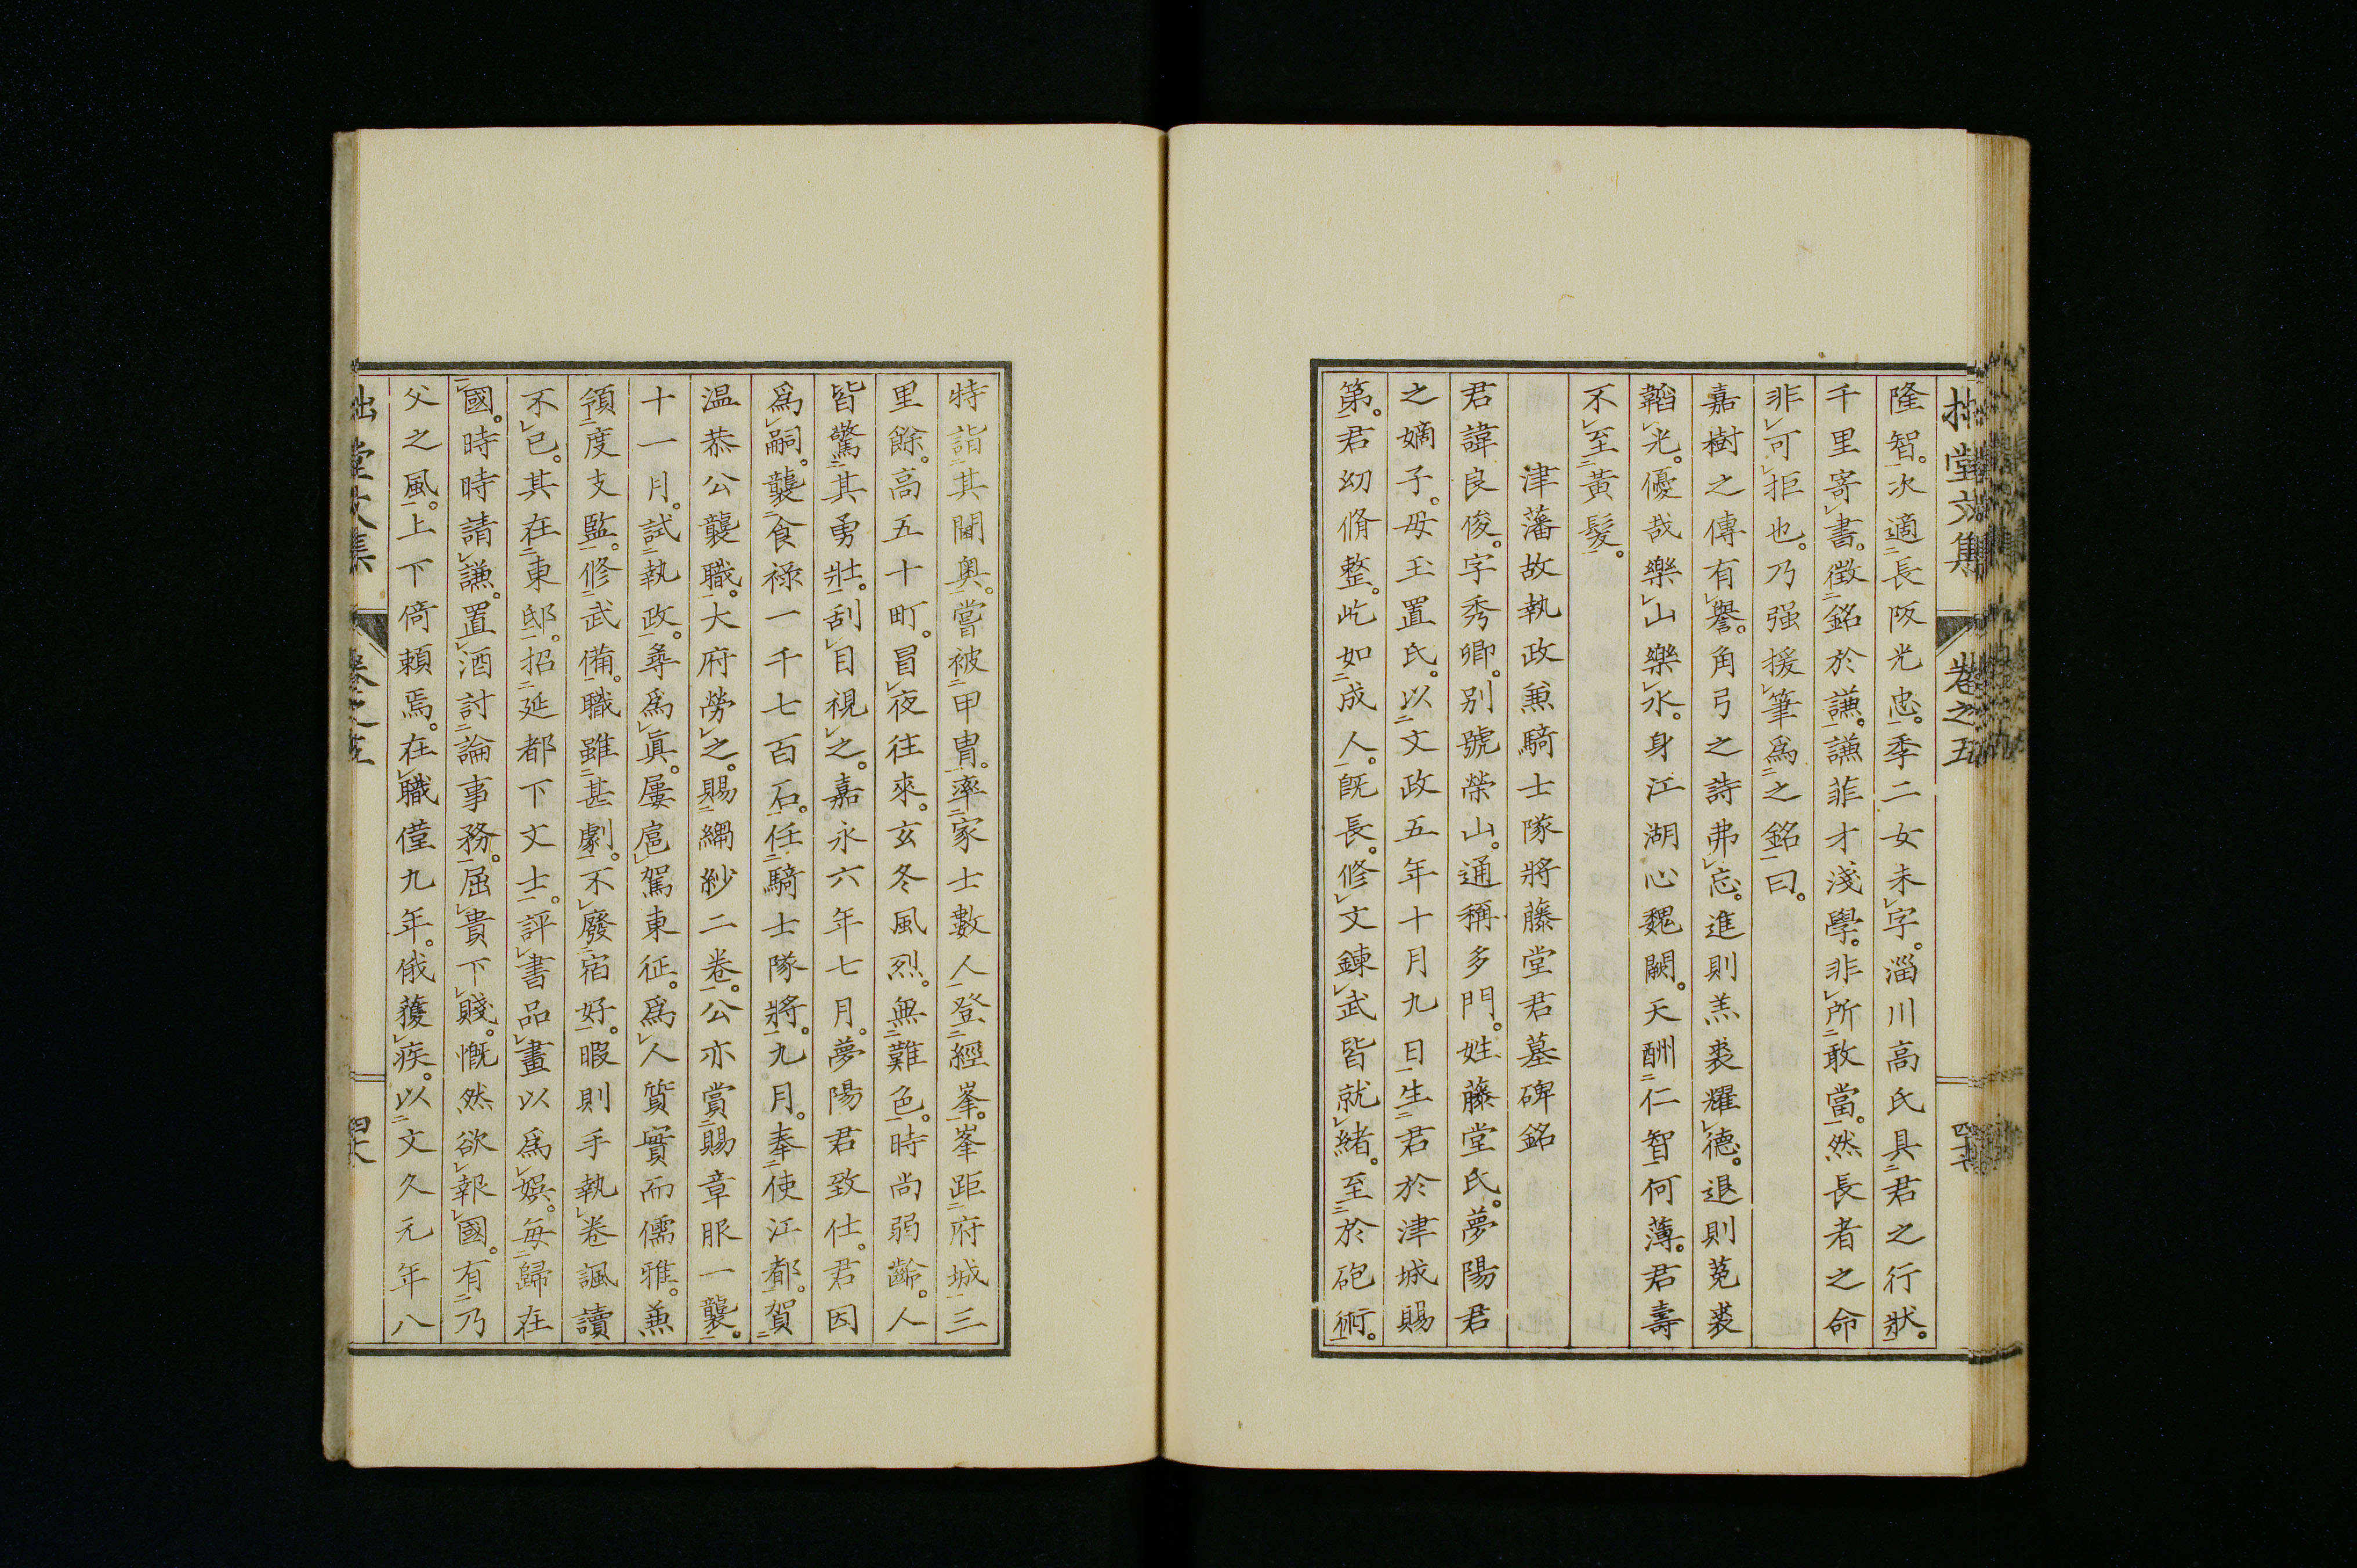 拙堂文集 卷之五
隆智。次適長阪光忠。季二女未字。淄川高氏具君之行狀。
千里寄書。徵銘於謙。謙菲才淺學。非所敢當。然長者之命
非可拒也。乃强援筆爲之銘曰。
嘉樹之傳有譽。角弓之詩弗忘。進則羔裘耀德。退則菟裘
韜光。優哉樂山樂水。身江湖心魏闕。天酬仁智何薄。君壽
不至黃髮。
津藩故執政兼騎士隊將藤堂君墓碑銘
君諱良俊。字秀卿。別號榮山。通稱多門。姓藤堂氏。夢陽君
之嫡子。母玉置氏。以文政五年十月九日生君於津城賜
第。君幼脩整。屹如成人。既長。修文鍊武皆就緒。至於砲術。
特詣其閫奧。嘗被甲冑。率家士數人登經峯。峯距府城三
里餘。高五十町。冒夜往來。玄冬風烈。無難色。時尚弱齡。人
皆驚其勇壯。刮目視之。嘉永六年七月。夢陽君致仕。君因
爲嗣。襲食祿一千七百石。任騎士隊將。九月。奉使江都。賀
温恭公襲職。大府勞之。賜縐紗二卷。公亦賞賜章服一襲。
十一月。試執政。尋爲眞。屢扈駕東征。爲人質實而儒雅。兼
領度支監。修武備。職雖甚劇。不廢宿好。暇則手執卷諷讀
不已。其在東邸。招延都下文士。評書品畫以爲娯。每歸在
國。時時請謙。置酒討論事務。屈貴下賤。慨然欲報國。有乃
父之風。上下倚賴焉。在職僅九年。俄獲疾。以文久元年八
拙堂文集 卷之五